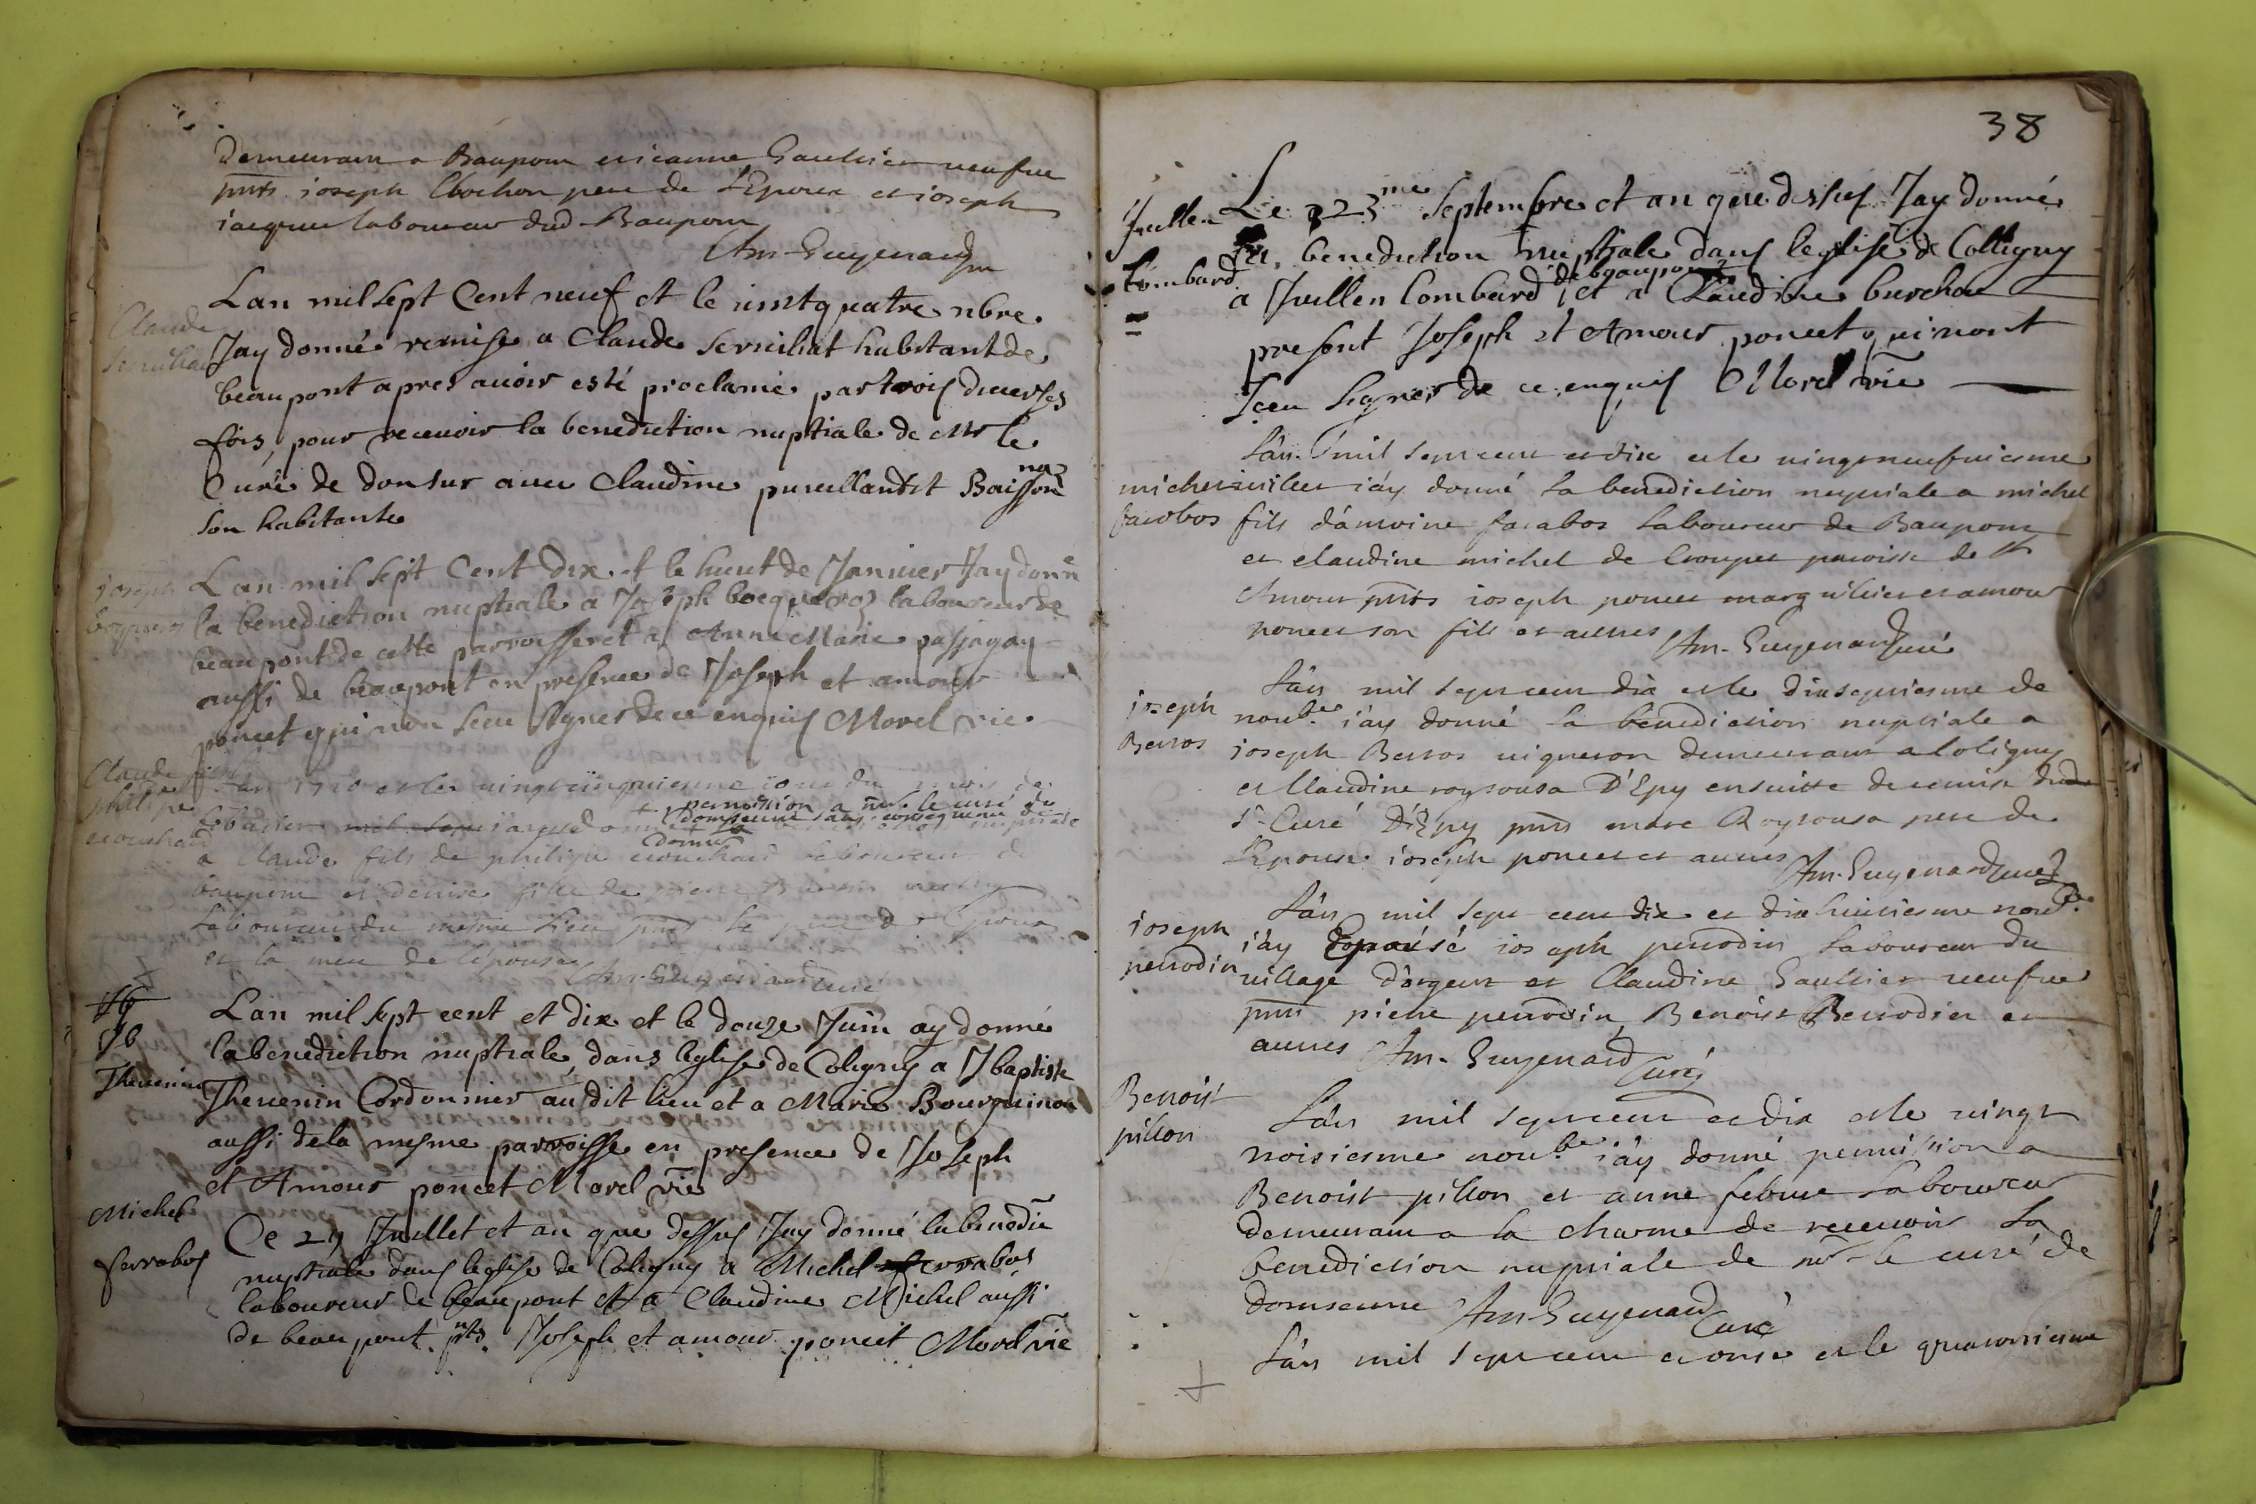 demeurant a Baupont et jeanne Gaultier veufve
pnts joseph Clochon pere de l'Epoux et joseph
jacquer laboureur dud Baupont
Am-Guyenard
Claude
Lan mil sept Cent neuf et le vintquatre nbre
Jay donné remise a Claude serriliat habitant de
beaupont apres avoir esté proclamé par trois diverses
fois, pour recevoir la benediction nuptiale de Mr le
Curé de donsur avec Claudine
son habitante
joseph
Lan mil sept Cent Dix et le huit de Janvier Jay donné
la benediction nuptiale a Joseph bocqueroz laboureur de
beaupont de cette parroisse et a Anne Marie passagay
aussi de beaupont en presence de Joseph et amour
poncet qui non sceu signer de ce enquis Morel vic.
Claude
philipe
Lan 1710 et le vingtcinquiesme jour du mois de
permission a mr le curé du
a Claude fils de philipe laboureur de
baupont et denise fille de pierre
laboureur du mesme lieu pnts le pere de l'epoux
et la mere de l'epouse
Am-Guyenard curé
Jb
Thevenin
Lan mil sept cent et dix et le douze Juin ay donné
la benediction nuptiale, dans leglise de Coligny a Jbaptiste
Thevenin Cordonnier audit lieu et a Marie Bourguinon
aussi de la mesme parroisse en presence de Joseph
et Amour poncet Morel vic
Michel
ferrabos
Ce 29 Juillet et an que dessus Jay donné la benedic
nuptiale dans leglise de Coligny a Michel ferrabos
laboureur de beaupont et a Claudine Michel aussi
de beaupont. pnts. Joseph et amour poncet Morel vic
38
Juillen
Combard
Le 23me Septembre et an que dessus Jay donné
la benediction nuptiale dans leglise de Colligny
de beaupont
a Juillen Combard, et a Claudine burchon
present Joseph et Amour poncet qui nont
sceu signer de ce enquis Morel vic
michel
farabos
Lán mil sept cent et dix et le vingtneufviesme
juillet j'áy donné la benediction nuptiale a michel
fils d'ántoine farabos laboureur de Baupont
et claudine michel de Croupet paroisse de St
Amour pnts joseph poncet marguillier et amour
poncet son fils et autres Am-Guyenard curé
joseph
Berros
Lán mil sept cent dix et le dixseptiesme de
novbre j'áy donné la benediction nuptiale a
joseph Berros vigneron demeurant a Coligny
et Claudine roysousa D'Epy ensuitte de remise dud
sr Curé D'Epy pnts marc Roysousa pere de
l'Epouse joseph poncet et autres Am-Guyenard curé
joseph
perrodin
Lán mil sept cent dix et dixhuitiesme novbre
j'áy Epousé joseph perrodin laboureur du
village d'argent et Claudine Gaultier veufve
pnts pierre perrodin, Benoist Perrodin et
autres Am-Guyenard Curé
Benoist
pillon
Lán mil sept cent et dix et le vingt
troisiesme novbre j'áy donné permission a
Benoist pillon et anne febvre laboureur
demeurant a la charme de recevoir la
benediction nuptiale de mr le curé de
domseure Am-Guyenard Curé
Lán mil sept cent et onse et le quatorsiesme